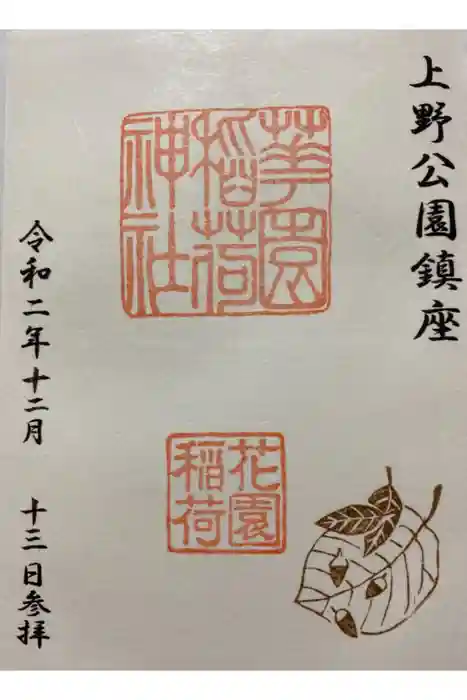 上野公園鎮座
華園
稲荷
神社
花園
稲荷
令和二年十二月 十三日参拝